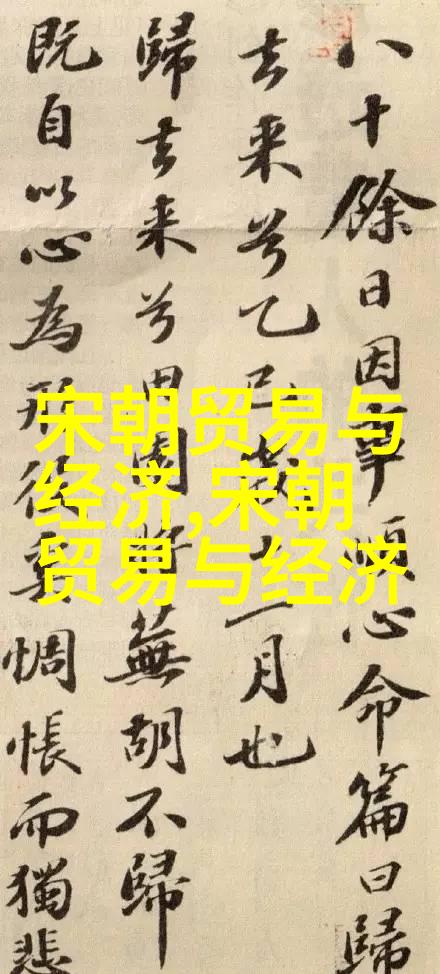 八十餘日因事順心命篇曰歸
去来兮乙巳歲十一月也
歸去来兮田園將蕪胡不歸
既自以心為形役奚惆悵而獨悲
宋朝贸易与
经济,宋朝
贸易与经济